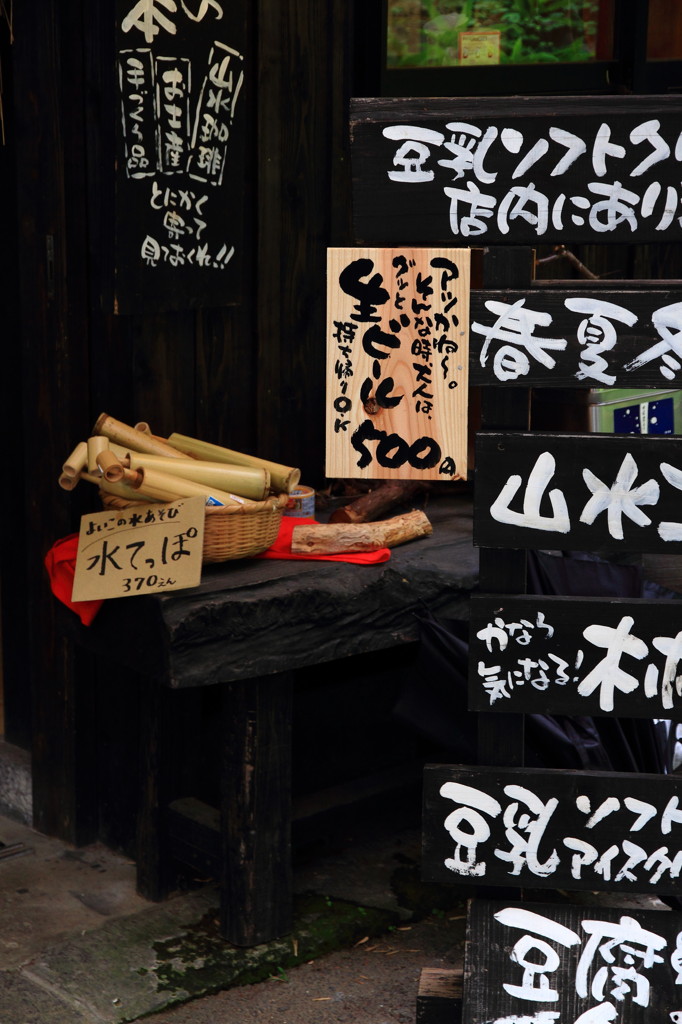 本の
山水珈琲
お土産
手づくり品
とにかく
寄って
見ておくれ!!
豆乳ソフトク
店内にあり
アツかね〜。
そんな時大人は、
グッと
生ビール
500円
持ち帰りO.K
春夏冬
山水
よいこの水あそび
水てっぽ
370えん
かなら
気になる!
豆乳ソフト
アイスクリ
豆腐